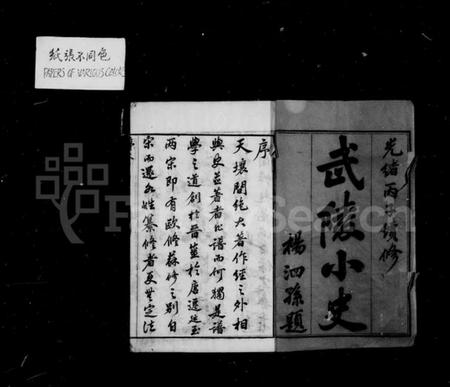 紙張不同色
PAPERS OF VARIOUS COLORS
光緒丙子續修
武陵小史
楊泗孫題
序
天壤間絶大著作經之外相
與史並著者化譜而何獨是譜
學之道創於晉盛於唐迄至
兩宋即有歐修蘇修之別自
宋而還各姓纂修者更無定法
Family Search